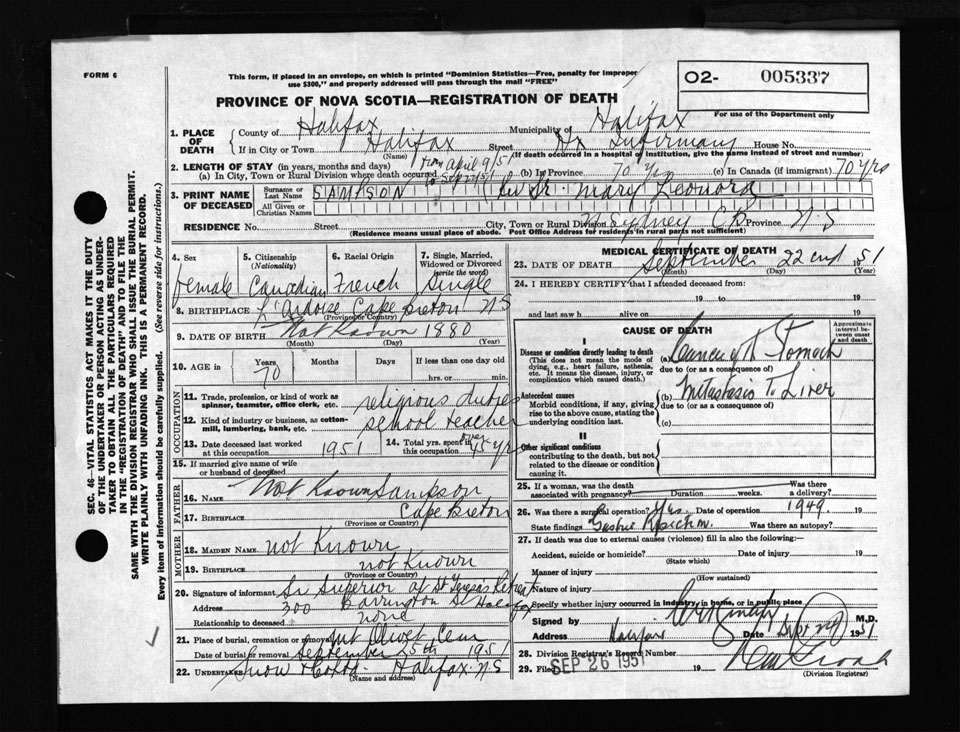 FORM 6
This form, if placed in an envelope, on which is printed "Dominion Statistics—Free, penalty for improper
use $300," and properly addressed will pass through the mail "FREE"
O2- 005337
For use of the Department only
PROVINCE OF NOVA SCOTIA—REGISTRATION OF DEATH
1. PLACE OF DEATH County of Halifax Municipality of Halifax
If in City or Town Halifax Street Hx Infirmary House No.
(Name) (If death occurred in a hospital or institution, give the name instead of street and number)
2. LENGTH OF STAY (in years, months and days) from April 9/51
(a) In City, Town or Rural Division where death occurred to Sep 22/51 (b) In Province 70 yrs (c) In Canada (if immigrant) 70 yrs
3. PRINT NAME OF DECEASED Surname or Last Name SAMPSON Mary Leonora
All Given or Christian Names
RESIDENCE No. Street City, Town or Rural Division N Sydney CB Province N-S
(Residence means usual place of abode. Post Office Address for residents in rural parts not sufficient)
4. Sex 5. Citizenship (Nationality) 6. Racial Origin 7. Single, Married, Widowed or Divorced (write the word)
Female Canadian French Single
8. BIRTHPLACE L'Ardoise Cape Breton NS
(Province or Country)
9. DATE OF BIRTH Not Known 1880
(Month) (Day) (Year)
10. AGE in Years Months Days If less than one day old
70 hrs. or min.
OCCUPATION
11. Trade, profession, or kind of work as spinner, teamster, office clerk, etc. religious duties
12. Kind of industry or business, as cotton-mill, lumbering, bank, etc. school teacher
13. Date deceased last worked at this occupation 1951 14. Total yrs. spent in this occupation over 45 yrs
15. If married give name of wife or husband of deceased
FATHER
16. Name Not Known Sampson
17. Birthplace Cape Breton
(Province or Country)
MOTHER
18. Maiden Name not Known
19. Birthplace not Known
(Province or Country)
20. Signature of informant Sr Superior at St Teresas Retreat
Address 300 Barrington St Halifax
Relationship to deceased none
21. Place of burial, cremation or removal Mt Olivet Cem
Date of burial or removal September 25th 1951
22. Undertaker Snow & Co Ltd. Halifax N S
(Name and address)
MEDICAL CERTIFICATE OF DEATH
23. DATE OF DEATH September 22nd 1951
(Month) (Day) (Year)
24. I HEREBY CERTIFY that I attended deceased from:
19 to 19
and last saw h alive on 19
CAUSE OF DEATH
Approximate interval between onset and death
I
Disease or condition directly leading to death
(This does not mean the mode of dying, e.g., heart failure, asthenia, etc. It means the disease, injury, or complication which caused death.)
(a) Cancer of the Stomach
due to (or as a consequence of)
Antecedent causes
Morbid conditions, if any, giving rise to the above cause, stating the underlying condition last.
(b) Metastasis To Liver
due to (or as a consequence of)
(c)
II
Other significant conditions
contributing to the death, but not related to the disease or condition causing it.
25. If a woman, was the death associated with pregnancy? Duration weeks. Was there a delivery?
26. Was there a surgical operation? Yes Date of operation 1949 19
State findings Gastric Was there an autopsy?
27. If death was due to external causes (violence) fill in also the following:—
Accident, suicide or homicide? Date of injury 19
(State which)
Manner of injury
(How sustained)
Nature of injury
Specify whether injury occurred in industry, in home, or in public place
Signed by M.D.
Address Halifax Date Sept 24 1951
28. Division Registrar's Record Number
29. Filed SEP 26 1951 19
(Division Registrar)
SEC. 46—VITAL STATISTICS ACT MAKES IT THE DUTY
OF THE UNDERTAKER OR PERSON ACTING AS UNDERTAKER
TO OBTAIN ALL THE PARTICULARS REQUIRED
IN THE "REGISTRATION OF DEATH" AND TO FILE THE
SAME WITH THE DIVISION REGISTRAR WHO SHALL ISSUE THE BURIAL PERMIT.
WRITE PLAINLY WITH UNFADING INK. THIS IS A PERMANENT RECORD.
Every item of information should be carefully supplied. (See reverse side for instructions.)